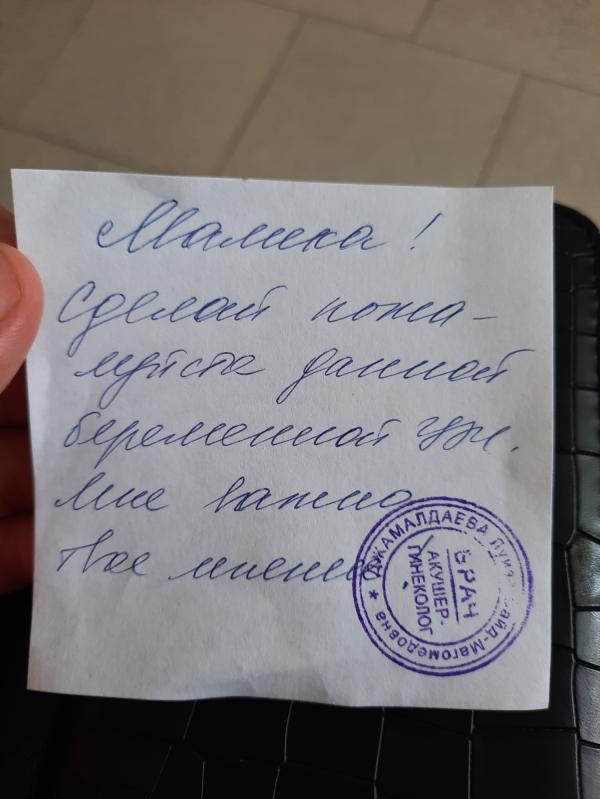 Малика!
Сделай пожа-
луйста данной
беременной узи.
Мне важно
твое мнение
ДЖАМАЛДАЕВА
Магомедовна *
ВРАЧ
АКУШЕР-
ГИНЕКОЛОГ